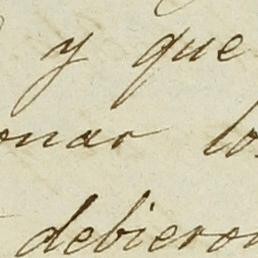 y que
onar los
debieron